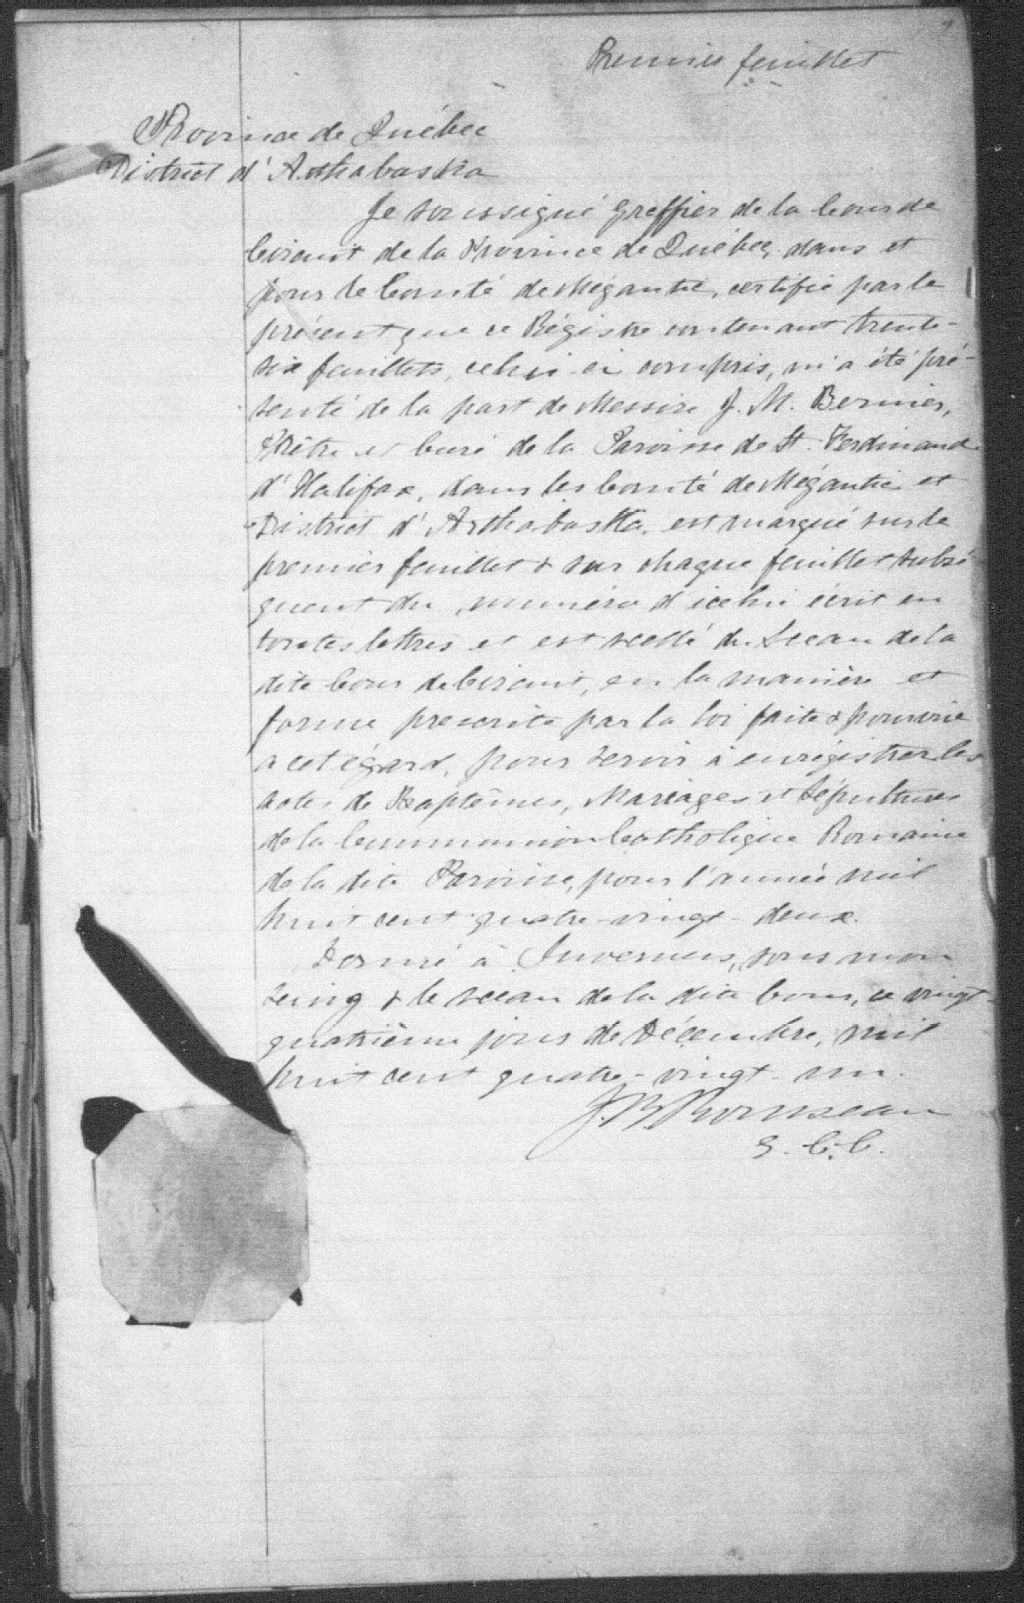 Premier feuillet
Province de Québec
District d'Arthabaska
Je soussigné Greffier de la Cour de
Circuit de la Province de Québec, dans et
pour le Comté de Mégantic, certifie par le
présent que ce Régistre contenant trente-
six feuillets, celui-ci compris, m'a été pré-
senté de la part de Messire J. M. Bernier,
Prêtre et Curé de la Paroisse de St. Ferdinand
d'Halifax, dans les Comté de Mégantic et
District d'Arthabaska, est marqué sur le
premier feuillet & sur chaque feuillet subsé
quent du numéro d'icelui écrit en
toutes lettres et est scellé du Sceau de la
dite Cour de Circuit, en la manière et
forme prescrite par la loi faite & pourvue
a cet égard, pour servir à enrégistrer les
actes de Baptêmes, Mariages et Sépultures
de la Communion Catholique Romaine
de la dite Paroisse, pour l'année mil
huit cent quatre-vingt-deux.
Donné à Inverness, sous mon
seing & le sceau de la dite Cour, ce vingt-
quatrième jour de Décembre, mil
huit cent quatre-vingt-un.
J. B. Rousseau
G. C. C.